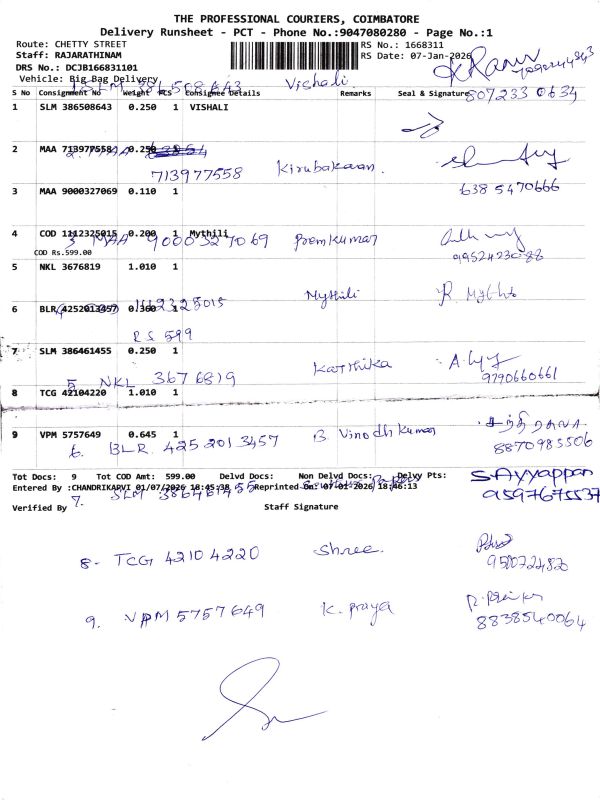 THE PROFESSIONAL COURIERS, COIMBATORE
Delivery Runsheet - PCT - Phone No.:9047080280 - Page No.:1
Route: CHETTY STREET
RS No.: 1668311
Staff: RAJARATHINAM
RS Date: 07-Jan-2026
DRS No.: DCJB166831101
Vehicle: Big Bag Delivery
SLM 386508643 Vishali
S No Consignment No Weight PCS Consignee Details Remarks Seal & Signature
807233 0634
1 SLM 386508643 0.250 1 VISHALI
2 MAA 713977558 0.250 1
713977558 Kirubakaran.
638 5470666
3 MAA 9000327069 0.110 1
4 COD 1112325015 0.200 1 Mythili
COD Rs.599.00
3 MAA 9000327069 Premkumar
5 NKL 3676819 1.010 1
Mythili
6 BLR 4252013457 0.360 1
RS 599
7 SLM 386461455 0.250 1
Karthika
9790660661
5 NKL 3676819
8 TCG 42104220 1.010 1
9 VPM 5757649 0.645 1
B. Vinodhkumar
6. BLR 4252013457
8870985506
Tot Docs: 9 Tot COD Amt: 599.00 Delvd Docs: Non Delvd Docs: Delvy Pts:
S Ayyappan
Entered By :CHANDRIKARVI 01/07/2026 18:45:38 Reprinted On: 07-01-2026 18:46:13
7. SLM 386461455
9597675537
Verified By Staff Signature
8- TCG 42104220 Shree.
9. VPM 5757649 K. Priya
8838540064